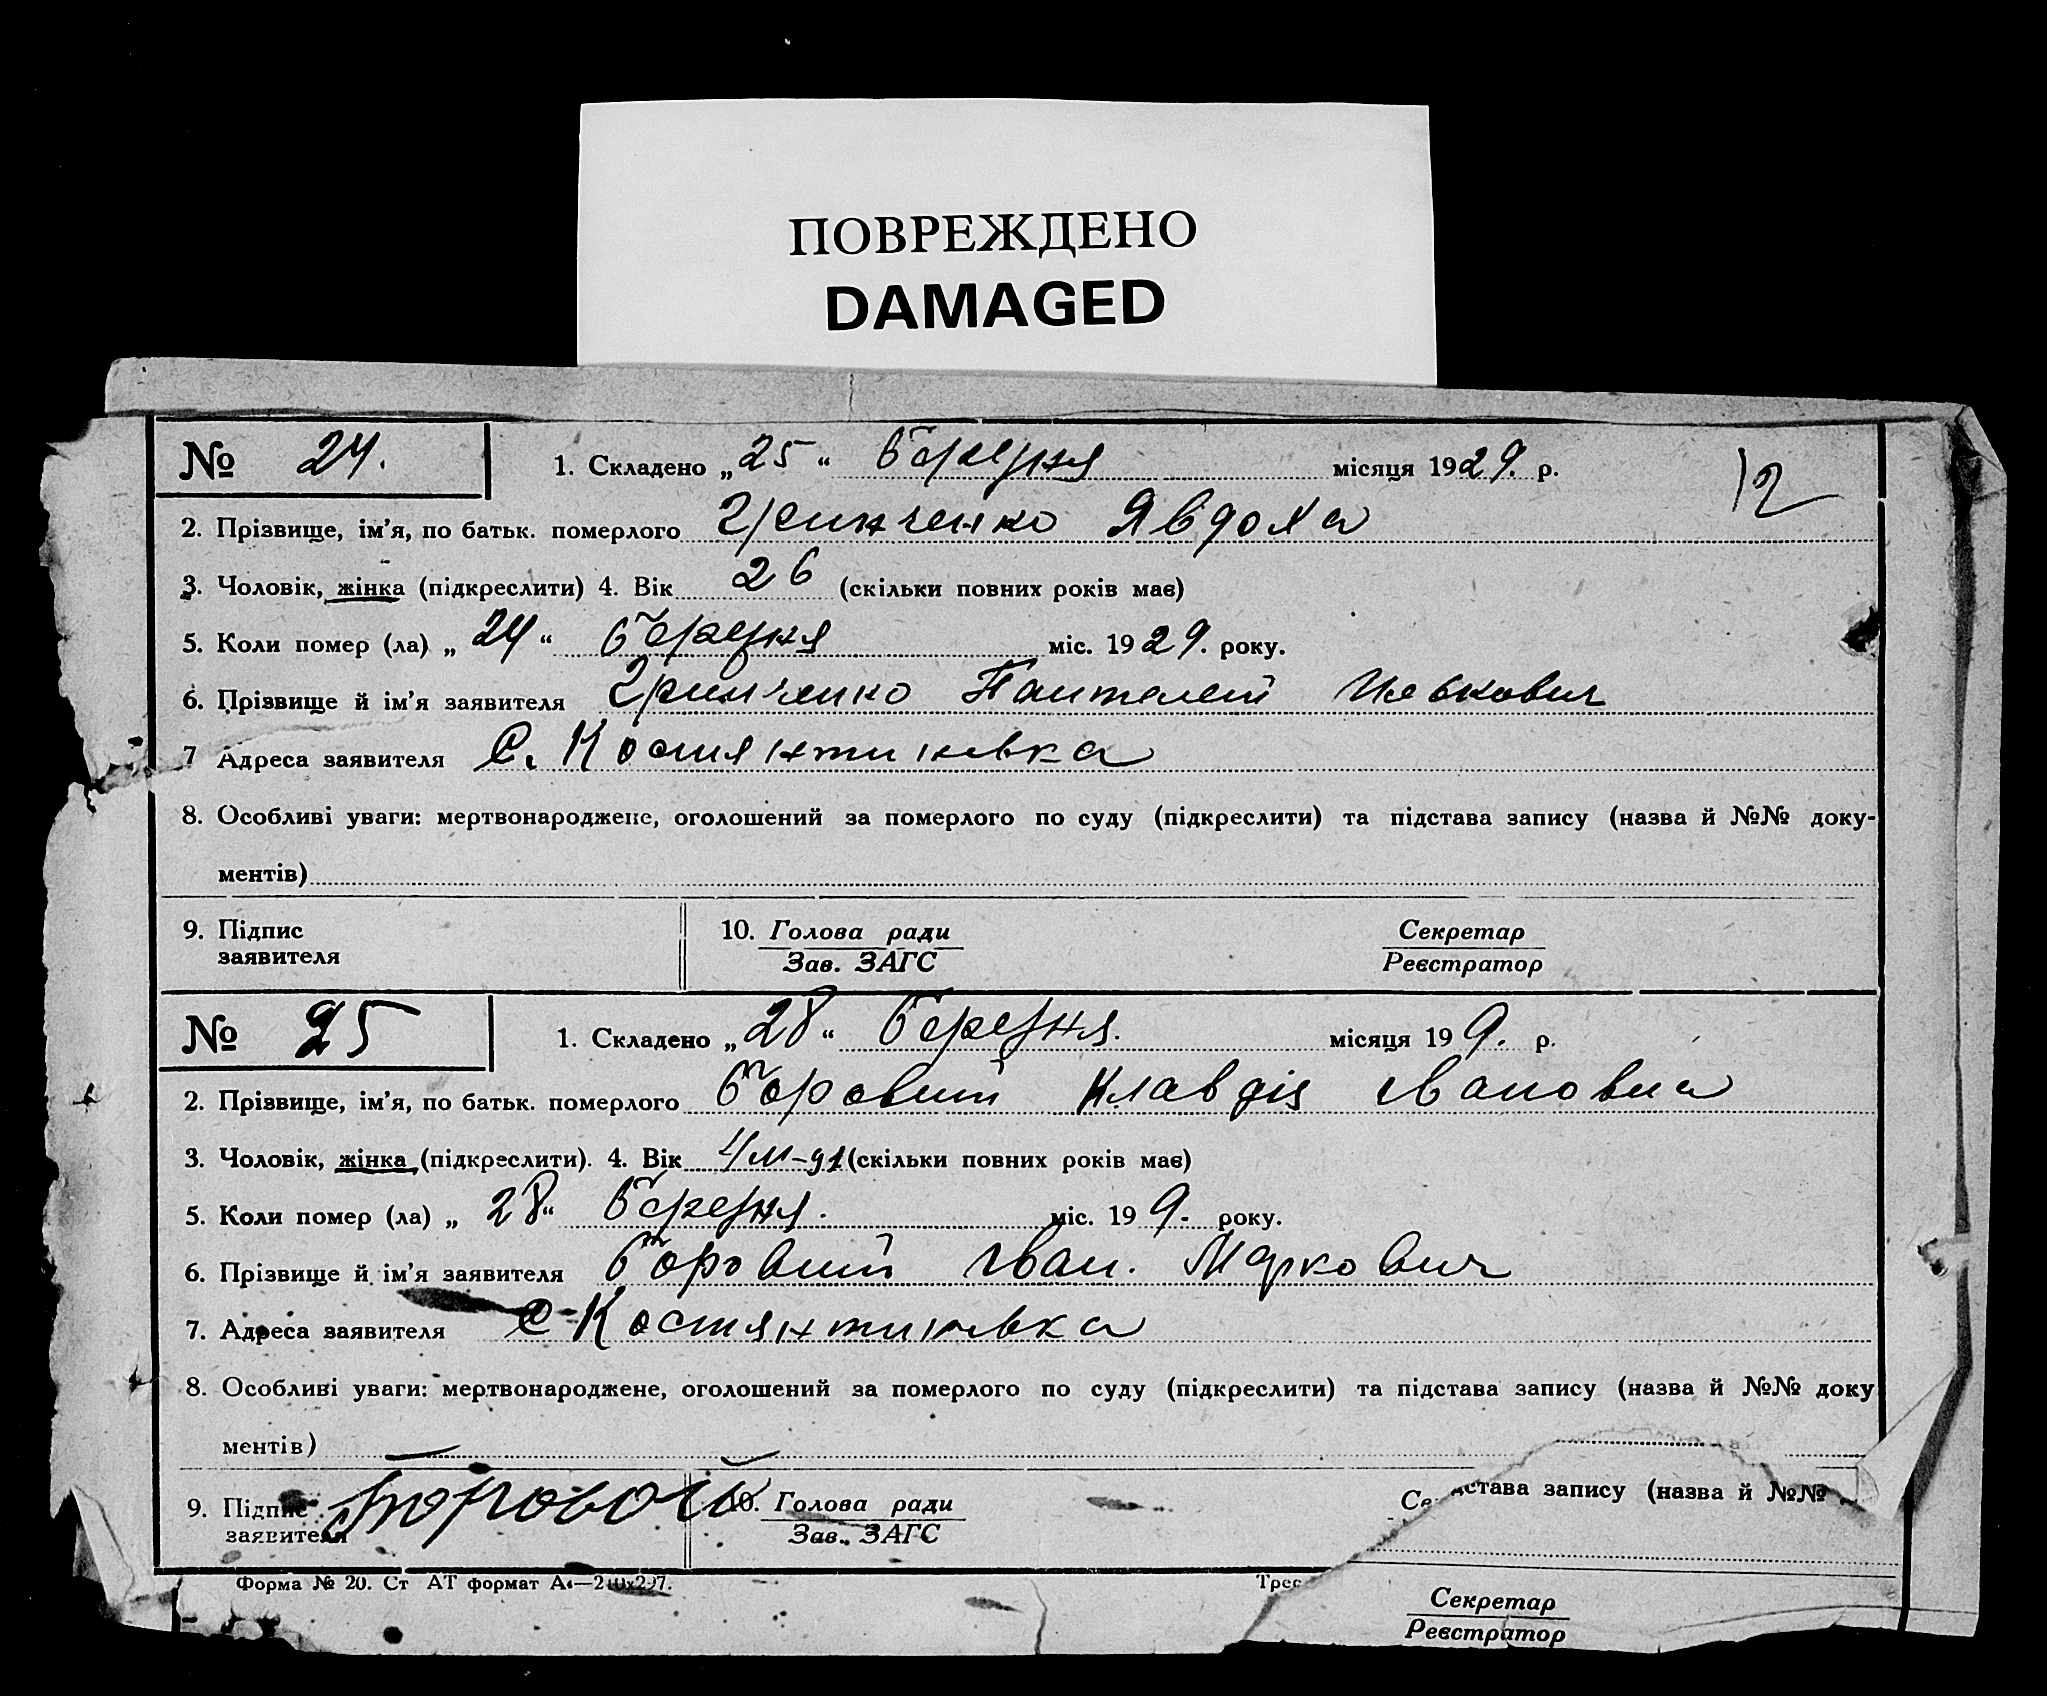 ПОВРЕЖДЕНО
DAMAGED
№ 24. 1. Складено „25“ березня місяця 1929. р.
12
2. Прізвище, ім’я, по батьк. померлого Гринченко Явдоха
3. Чоловік, жінка (підкреслити) 4. Вік 26 (скільки повних років має)
5. Коли помер (ла) „24“ березня міс. 1929. року.
6. Прізвище й ім’я заявителя Гринченко Пантелей
7 Адреса заявителя С. Костянтинівка
8. Особливі уваги: мертвонароджене, оголошений за померлого по суду (підкреслити) та підстава запису (назва й №№ доку-
ментів)
9. Підпис заявителя 10. Голова ради Секретар
Зав. ЗАГС Реєстратор
№ 25 1. Складено „28“ березня. місяця 19 9. р.
2. Прізвище, ім’я, по батьк. померлого Боровий Клавдія Івановна
3. Чоловік, жінка (підкреслити). 4. Вік (скільки повних років має)
5. Коли помер (ла) „28“ березня. міс. 19 9. року.
6. Прізвище й ім’я заявителя Боровий Іван. Маркович
7. Адреса заявителя С Костянтинівка
8. Особливі уваги: мертвонароджене, оголошений за померлого по суду (підкреслити) та підстава запису (назва й №№ доку
ментів)
9. Підпис заявителя Боровой 10. Голова ради
Зав. ЗАГС
запису (назва й №№
Форма № 20. Ст АТ формат А4—210х297.
Секретар
Реєстратор